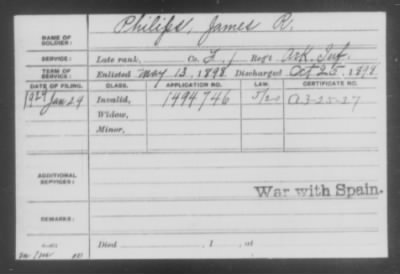 Philips, James R.
NAME OF SOLDIER:
SERVICE: Late rank, Co. L, 1 Reg't Ark. Inf.
TERM OF SERVICE: Enlisted May 13, 1898 Discharged Oct 25, 1898
DATE OF FILING. CLASS. APPLICATION NO. LAW. CERTIFICATE NO.
1929 Jan 29 Invalid, 1494746 A 3-25-27
Widow,
Minor,
ADDITIONAL SERVICES:
War with Spain.
REMARKS:
Died , 1 , at